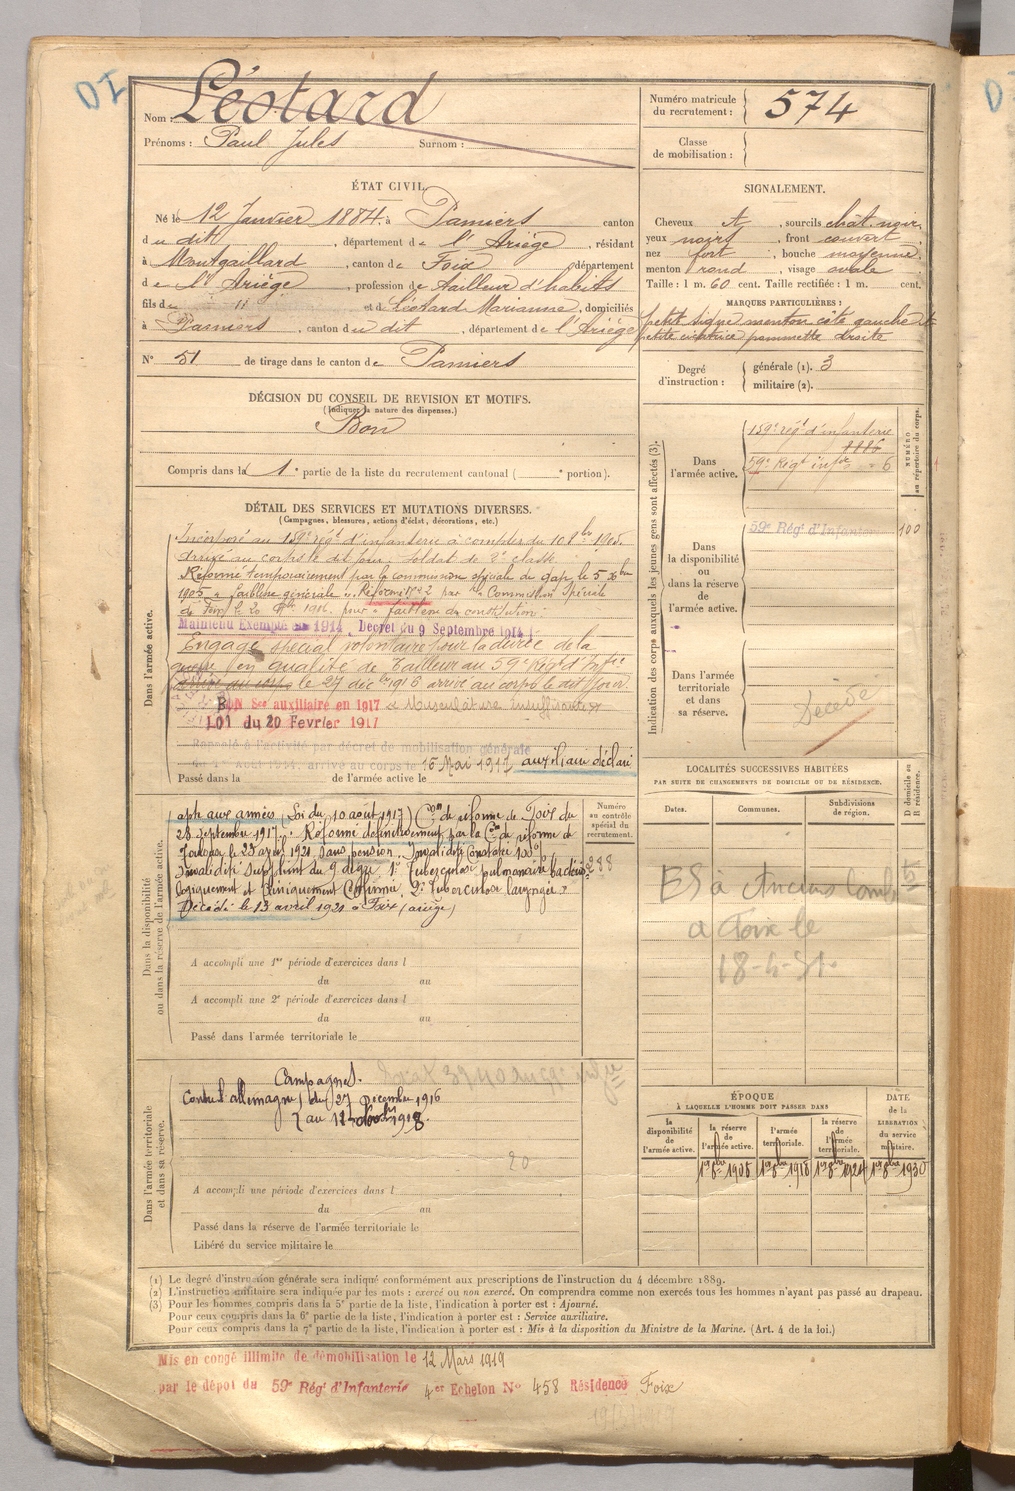 DI
Nom : Léotard
Prénoms : Paul Jules Surnom :
Numéro matricule du recrutement : 574
Classe de mobilisation :
ÉTAT CIVIL.
Né le 12 Janvier 1884, à Pamiers canton
du dit, département de l'Ariège, résidant
à Montgaillard, canton de Foix, département
de l'Ariège, profession de tailleur d'habits
fils de " et de Léotard Marianne, domiciliés
à Pamiers, canton du dit, département de l'Ariège
N° 51 de tirage dans le canton de Pamiers
SIGNALEMENT.
Cheveux , sourcils chât. noir,
yeux noirs, front couvert,
nez fort, bouche moyenne,
menton rond, visage ovale
Taille : 1 m. 60 cent. Taille rectifiée : 1 m. cent.
MARQUES PARTICULIÈRES :
petit signe menton côté gauche et
petite cicatrice pommette droite
Degré d'instruction : générale (1). 3
militaire (2).
DÉCISION DU CONSEIL DE REVISION ET MOTIFS.
(Indiquer la nature des dispenses.)
Bon
Compris dans la 1e partie de la liste du recrutement cantonal ( e portion).
DÉTAIL DES SERVICES ET MUTATIONS DIVERSES.
(Campagnes, blessures, actions d'éclat, décorations, etc.)
Dans l'armée active.
Incorporé au 159e régt d'infanterie à compter du 10 8bre 1905.
arrivé au corps le dit jour. Soldat de 2e classe.
Réformé temporairement par la commission spéciale de Gap, le 5 Xbre
1905 " faiblesse générale ". Réformé n° 2 par la Commission Spéciale
de Foix le 20 1906. pour " faiblesse de constitution.
Maintenu Exempté en 1914. Décret du 9 Septembre 1914
Engagé spécial volontaire pour la durée de la
guerre en qualité de Tailleur au 59e Régt d'Infie
arrivé au corps le 27 décbre 1916 arrivé au corps le dit jour.
BON Sce auxiliaire en 1917 " Musculature insuffisante "
LOI du 20 Fevrier 1917
Rappelé à l'activité par décret de mobilisation générale
du 1er Août 1914, arrivé au corps le 16 Mai 1917, auxiliaire déclaré
Passé dans la de l'armée active le
Indication des corps auxquels les jeunes gens sont affectés (3).
NUMÉRO au répertoire du corps.
Dans l'armée active.
159e régt d'infanterie
8886
59e Régt infie 6
Dans la disponibilité ou dans la réserve de l'armée active.
59e Régt d'Infanterie 100
Dans l'armée territoriale et dans sa réserve.
Décédé
Dans la disponibilité ou dans la réserve de l'armée active.
apte aux armées (Loi du 10 août 1917) Con de réforme de Foix du
28 septembre 1917. Réformé définitivement par la Con de réforme de
Toulouse le 23 avril 1921, sans pension. Invalidité Constatée 100%
1° Tuberculose pulmonaire bactério
logiquement et cliniquement Confirmée, 2° Tuberculose laryngée "
Décédé le 13 avril 1921 à Foix (ariège)
Numéro au contrôle spécial du recrutement.
288
A accompli une 1re période d'exercices dans l
du au
A accompli une 2e période d'exercices dans l
du au
Passé dans l'armée territoriale le
LOCALITÉS SUCCESSIVES HABITÉES
PAR SUITE DE CHANGEMENTS DE DOMICILE OU DE RÉSIDENCE.
Dates. Communes. Subdivisions de région. D domicile ou R résidence.
à Foix le
Dans l'armée territoriale et dans sa réserve.
Campagnes.
Contre l'allemagne, du 27 Décembre 1916
au 11 1918.
20
A accompli une période d'exercices dans l
du au
Passé dans la réserve de l'armée territoriale le
Libéré du service militaire le
ÉPOQUE
À LAQUELLE L'HOMME DOIT PASSER DANS
DATE de la LIBÉRATION du service militaire.
la disponibilité de l'armée active. la réserve de l'armée active. l'armée territoriale. la réserve de l'armée territoriale.
1er 8bre 1908 1er 8bre 1918 1er 8bre 1924 1er 8bre 1930
(1) Le degré d'instruction générale sera indiqué conformément aux prescriptions de l'instruction du 4 décembre 1889.
(2) L'instruction militaire sera indiquée par les mots : exercé ou non exercé. On comprendra comme non exercés tous les hommes n'ayant pas passé au drapeau.
(3) Pour les hommes compris dans la 5e partie de la liste, l'indication à porter est : Ajourné.
Pour ceux compris dans la 6e partie de la liste, l'indication à porter est : Service auxiliaire.
Pour ceux compris dans la 7e partie de la liste, l'indication à porter est : Mis à la disposition du Ministre de la Marine. (Art. 4 de la loi.)
Mis en congé illimité de démobilisation le 12 Mars 1919
par le dépôt du 59e Régt d'Infanterie 4e Echelon N° 458 Résidence Foix